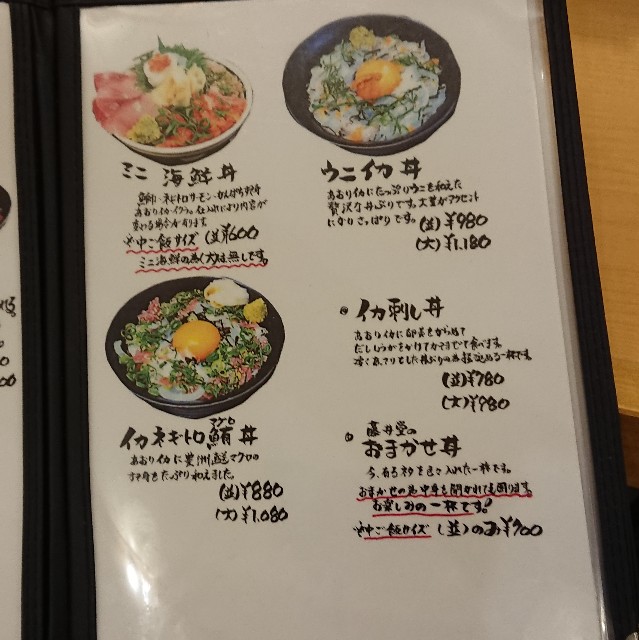 ミニ 海鮮丼
鰤・ネギトロサーモン・かんぱち中身
あおりイカイクラ。仕入れにより内容が
変わる場合が有ります。
※中ご飯サイズ (並)¥600
ミニ海鮮の為(大)は無しです。
ウニイカ丼
あおりイカにたっぷりウニを和えた
贅沢な丼ぶりです。大葉がアクセント
になりさっぱりです。
(並)¥980
(大)¥1,180
イカネギトロ鮪丼
マグロ
あおりイカに豊洲直送マグロの
中身をたっぷり和えました。
(並)¥880
(大)¥1,080
イカ刺し丼
あおりイカに卵黄をからめて
だししょうがをかけてかきまぜて食べます。
(並)¥780
(大)¥980
藤井堂の
おまかせ丼
今、有るネタを良き入れた一杯です。
おまかせの為中身を聞かれても困ります。
お楽しみの一杯です!
※中ご飯サイズ (並)のみ¥700